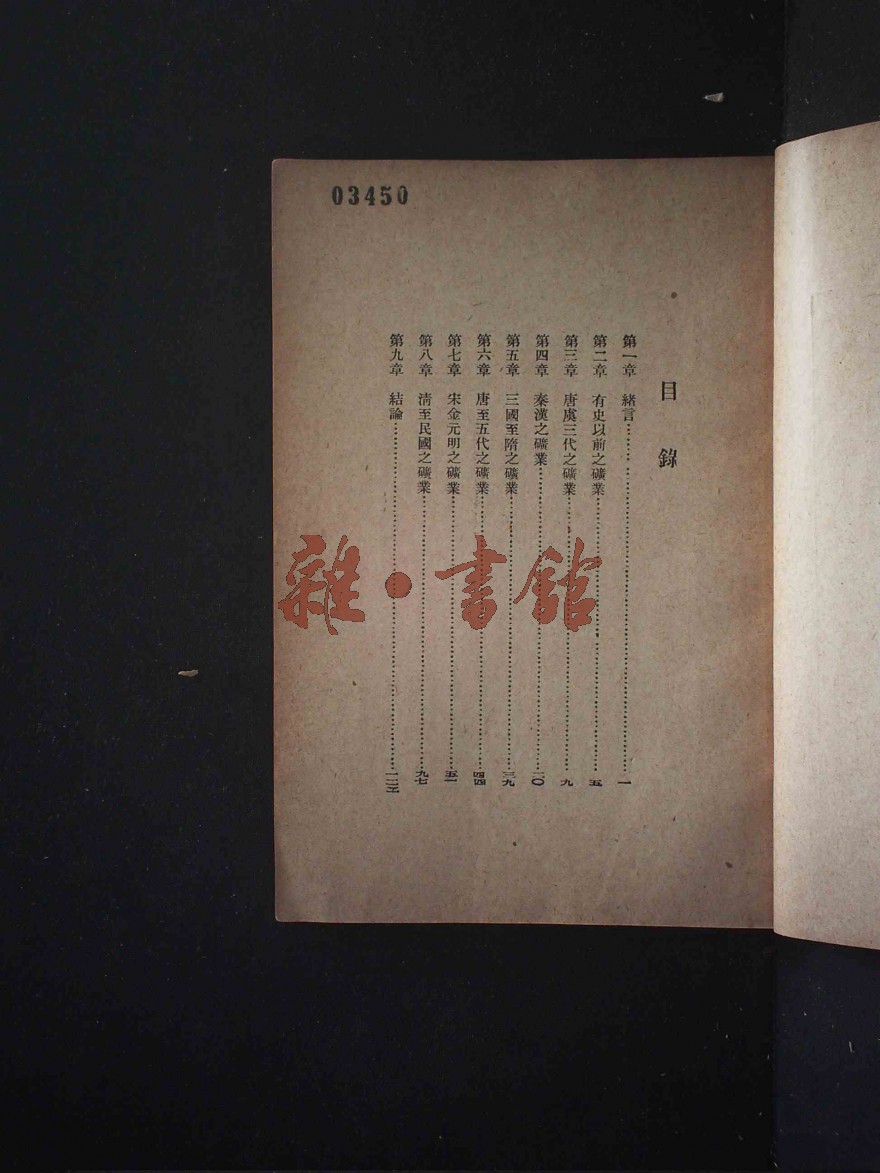 03450
目錄
第一章 緒言……一
第二章 有史以前之礦業……五
第三章 唐虞三代之礦業……九
第四章 秦漢之礦業……二〇
第五章 三國至隋之礦業……三九
第六章 唐至五代之礦業……四四
第七章 宋金元明之礦業……五一
第八章 清至民國之礦業……九七
第九章 結論……
雜·書館